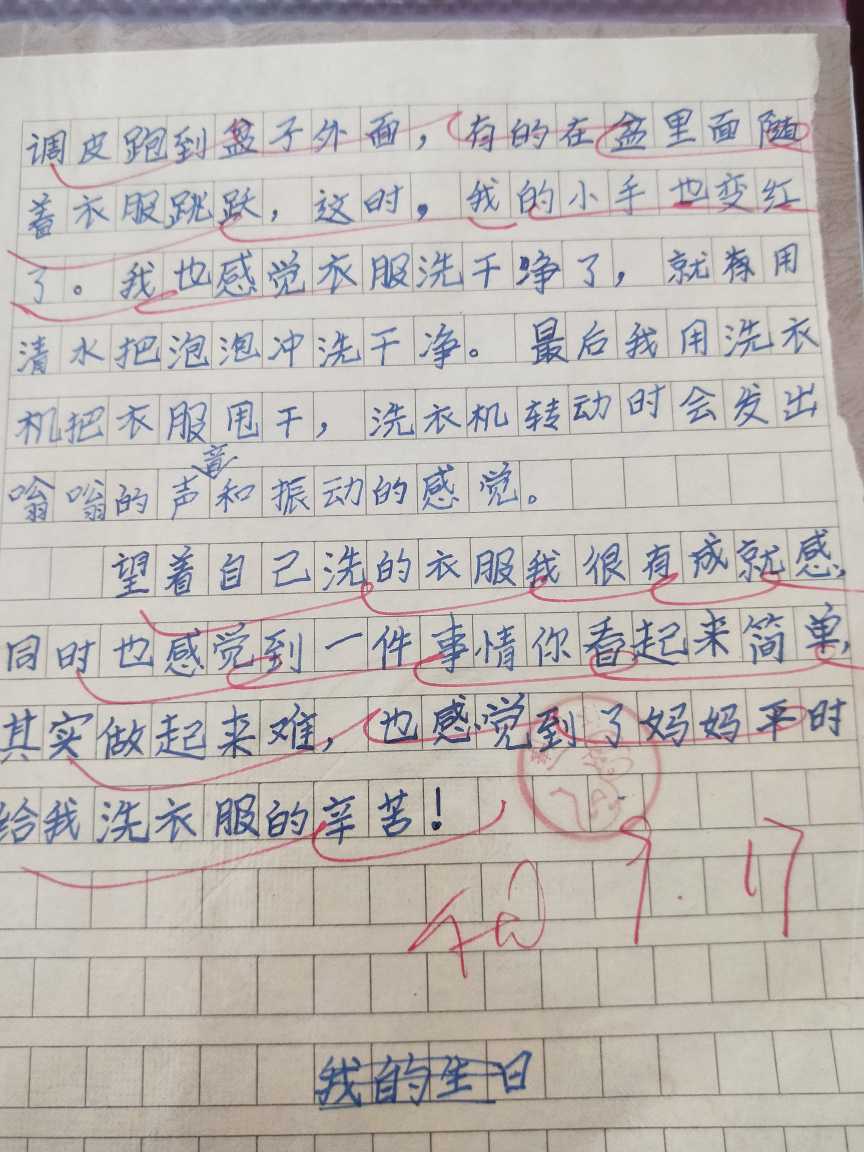 调皮跑到盆子外面，有的在盆里面随
着衣服跳跃，这时，我的小手也变红
了。我也感觉衣服洗干净了，就再用
清水把泡泡冲洗干净。最后我用洗衣
机把衣服甩干，洗衣机转动时会发出
嗡嗡的声音和振动的感觉。
望着自己洗的衣服我很有成就感，
同时也感觉到一件事情你看起来简单，
其实做起来难，也感觉到了妈妈平时
给我洗衣服的辛苦！
9.17
我的生日